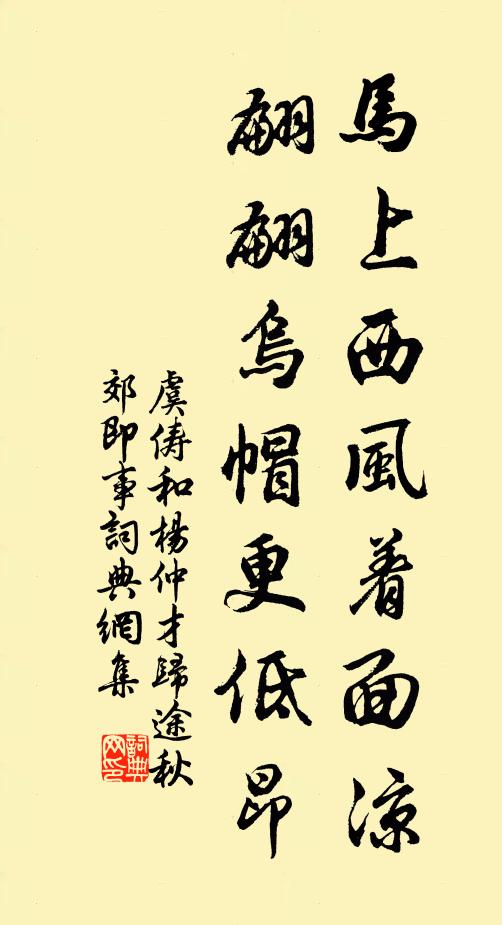 馬上西風着面涼
翩翩烏帽更低昂
虞儔和楊仲才歸途秋
郊即事詞典網集
詞典
网印